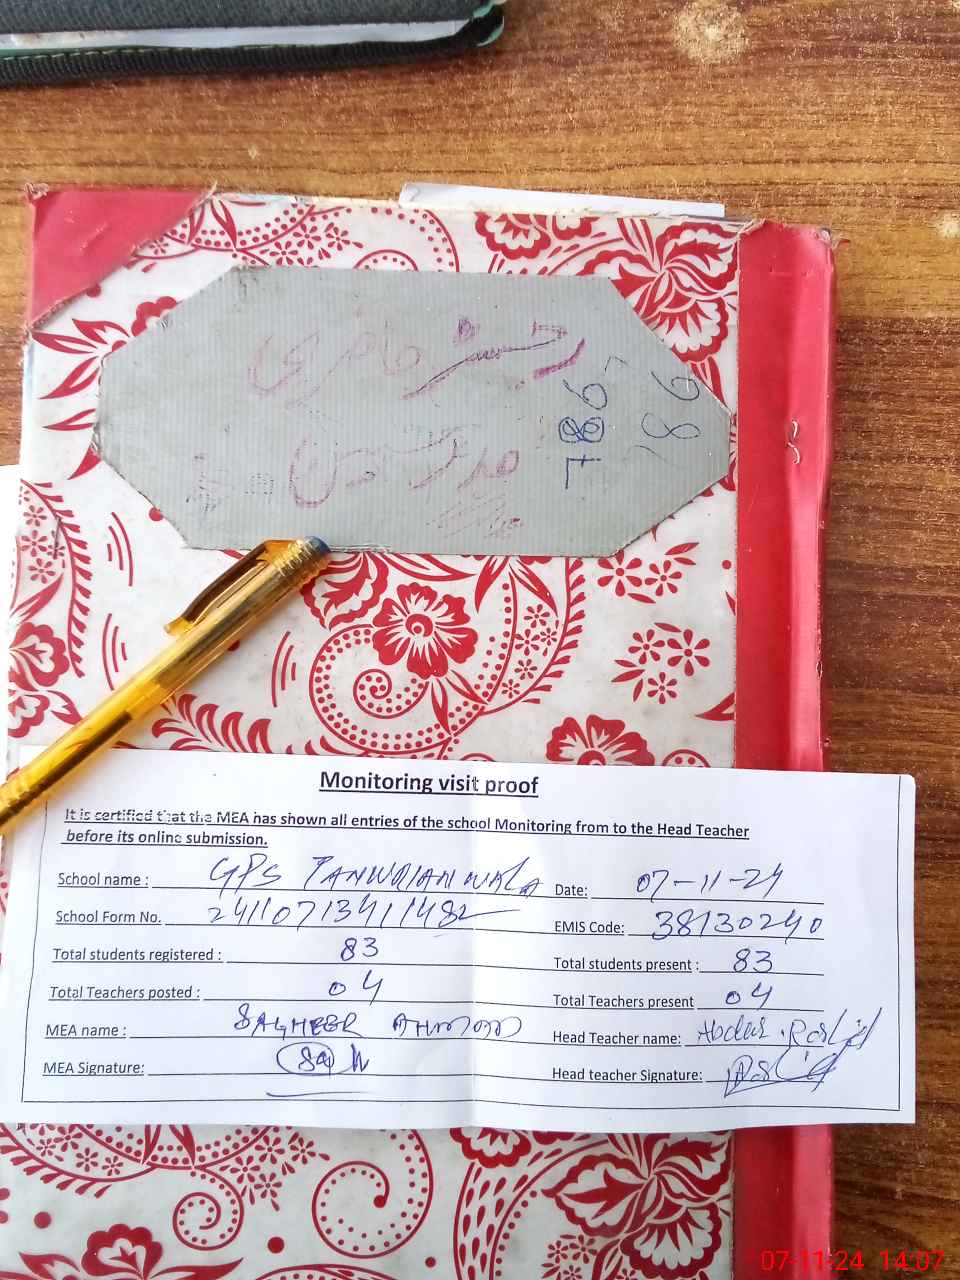 رجسٹر حاضری
786
786
Monitoring visit proof
It is certified that the MEA has shown all entries of the school Monitoring from to the Head Teacher
before its online submission.
School name : GPS TANWRIANWALA Date: 07-11-24
School Form No. 24110713411482 EMIS Code: 38130240
Total students registered : 83 Total students present : 83
Total Teachers posted : 04 Total Teachers present 04
MEA name : SAGHEER AHMAD Head Teacher name: Abdur Rashid
MEA Signature: Head teacher Signature:
07-11-24 14:07